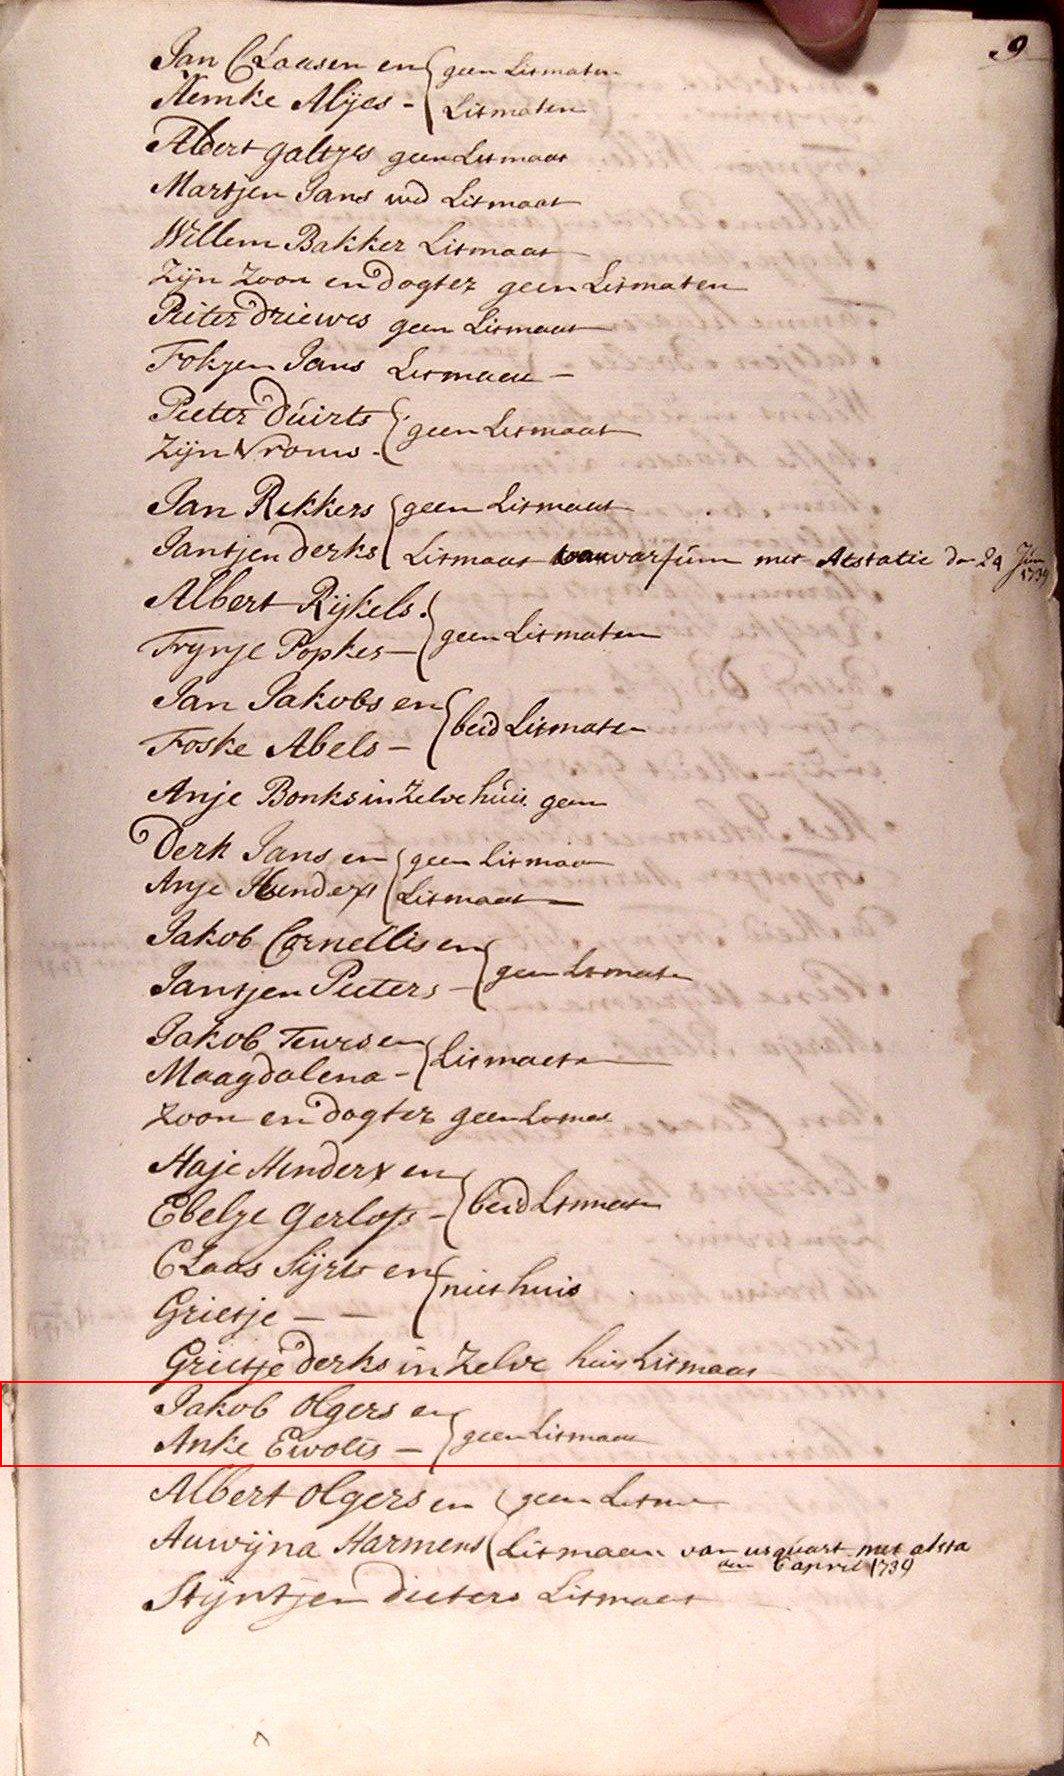 9
Jan Claasen en geen Litmaten
Nemke Alijes - Litmaten
Albert galtjes geen Litmaat
Martjen Jans wd Litmaat
Willem Bakker Litmaat
Zijn Zoon en dogter geen Litmaten
Pieter driewes geen Litmaat
Fokjen Jans Litmaat -
Pieter duirts geen Litmaat
Zijn Vrouw -
Jan Rekkers geen Litmaat
Jantjen derks Litmaat van warfúm met Atstatie dn 24 Jún 1739
Albert Rijkels geen Litmaten
Tryntje Popkes -
Jan Jakobs en beid Litmaten
Foske Abels -
Anje Bonks in Zelve húis geen
Derk Jans en geen Litmaat
Anje Hinderx Litmaat
Jakob Cornellis en geen Litmaten
Jantjen Pieters -
Jakob Teurs en Litmaten
Maagdalena -
Zoon en dogter geen
Haje Hinderx en beid Litmaten
Ebelje Gerlofs -
Claas Sijrts en niet huis
Grietje - -
Grietje derks in Zelve huis Litmaat
Jakob Olgers en geen Litmaat
Anke Ewolts -
Albert Olgers en geen Litm
Auwijna Harmens Litmaat van usquart met atsta
den 6 april 1739
Stijntjen dieters Litmaat